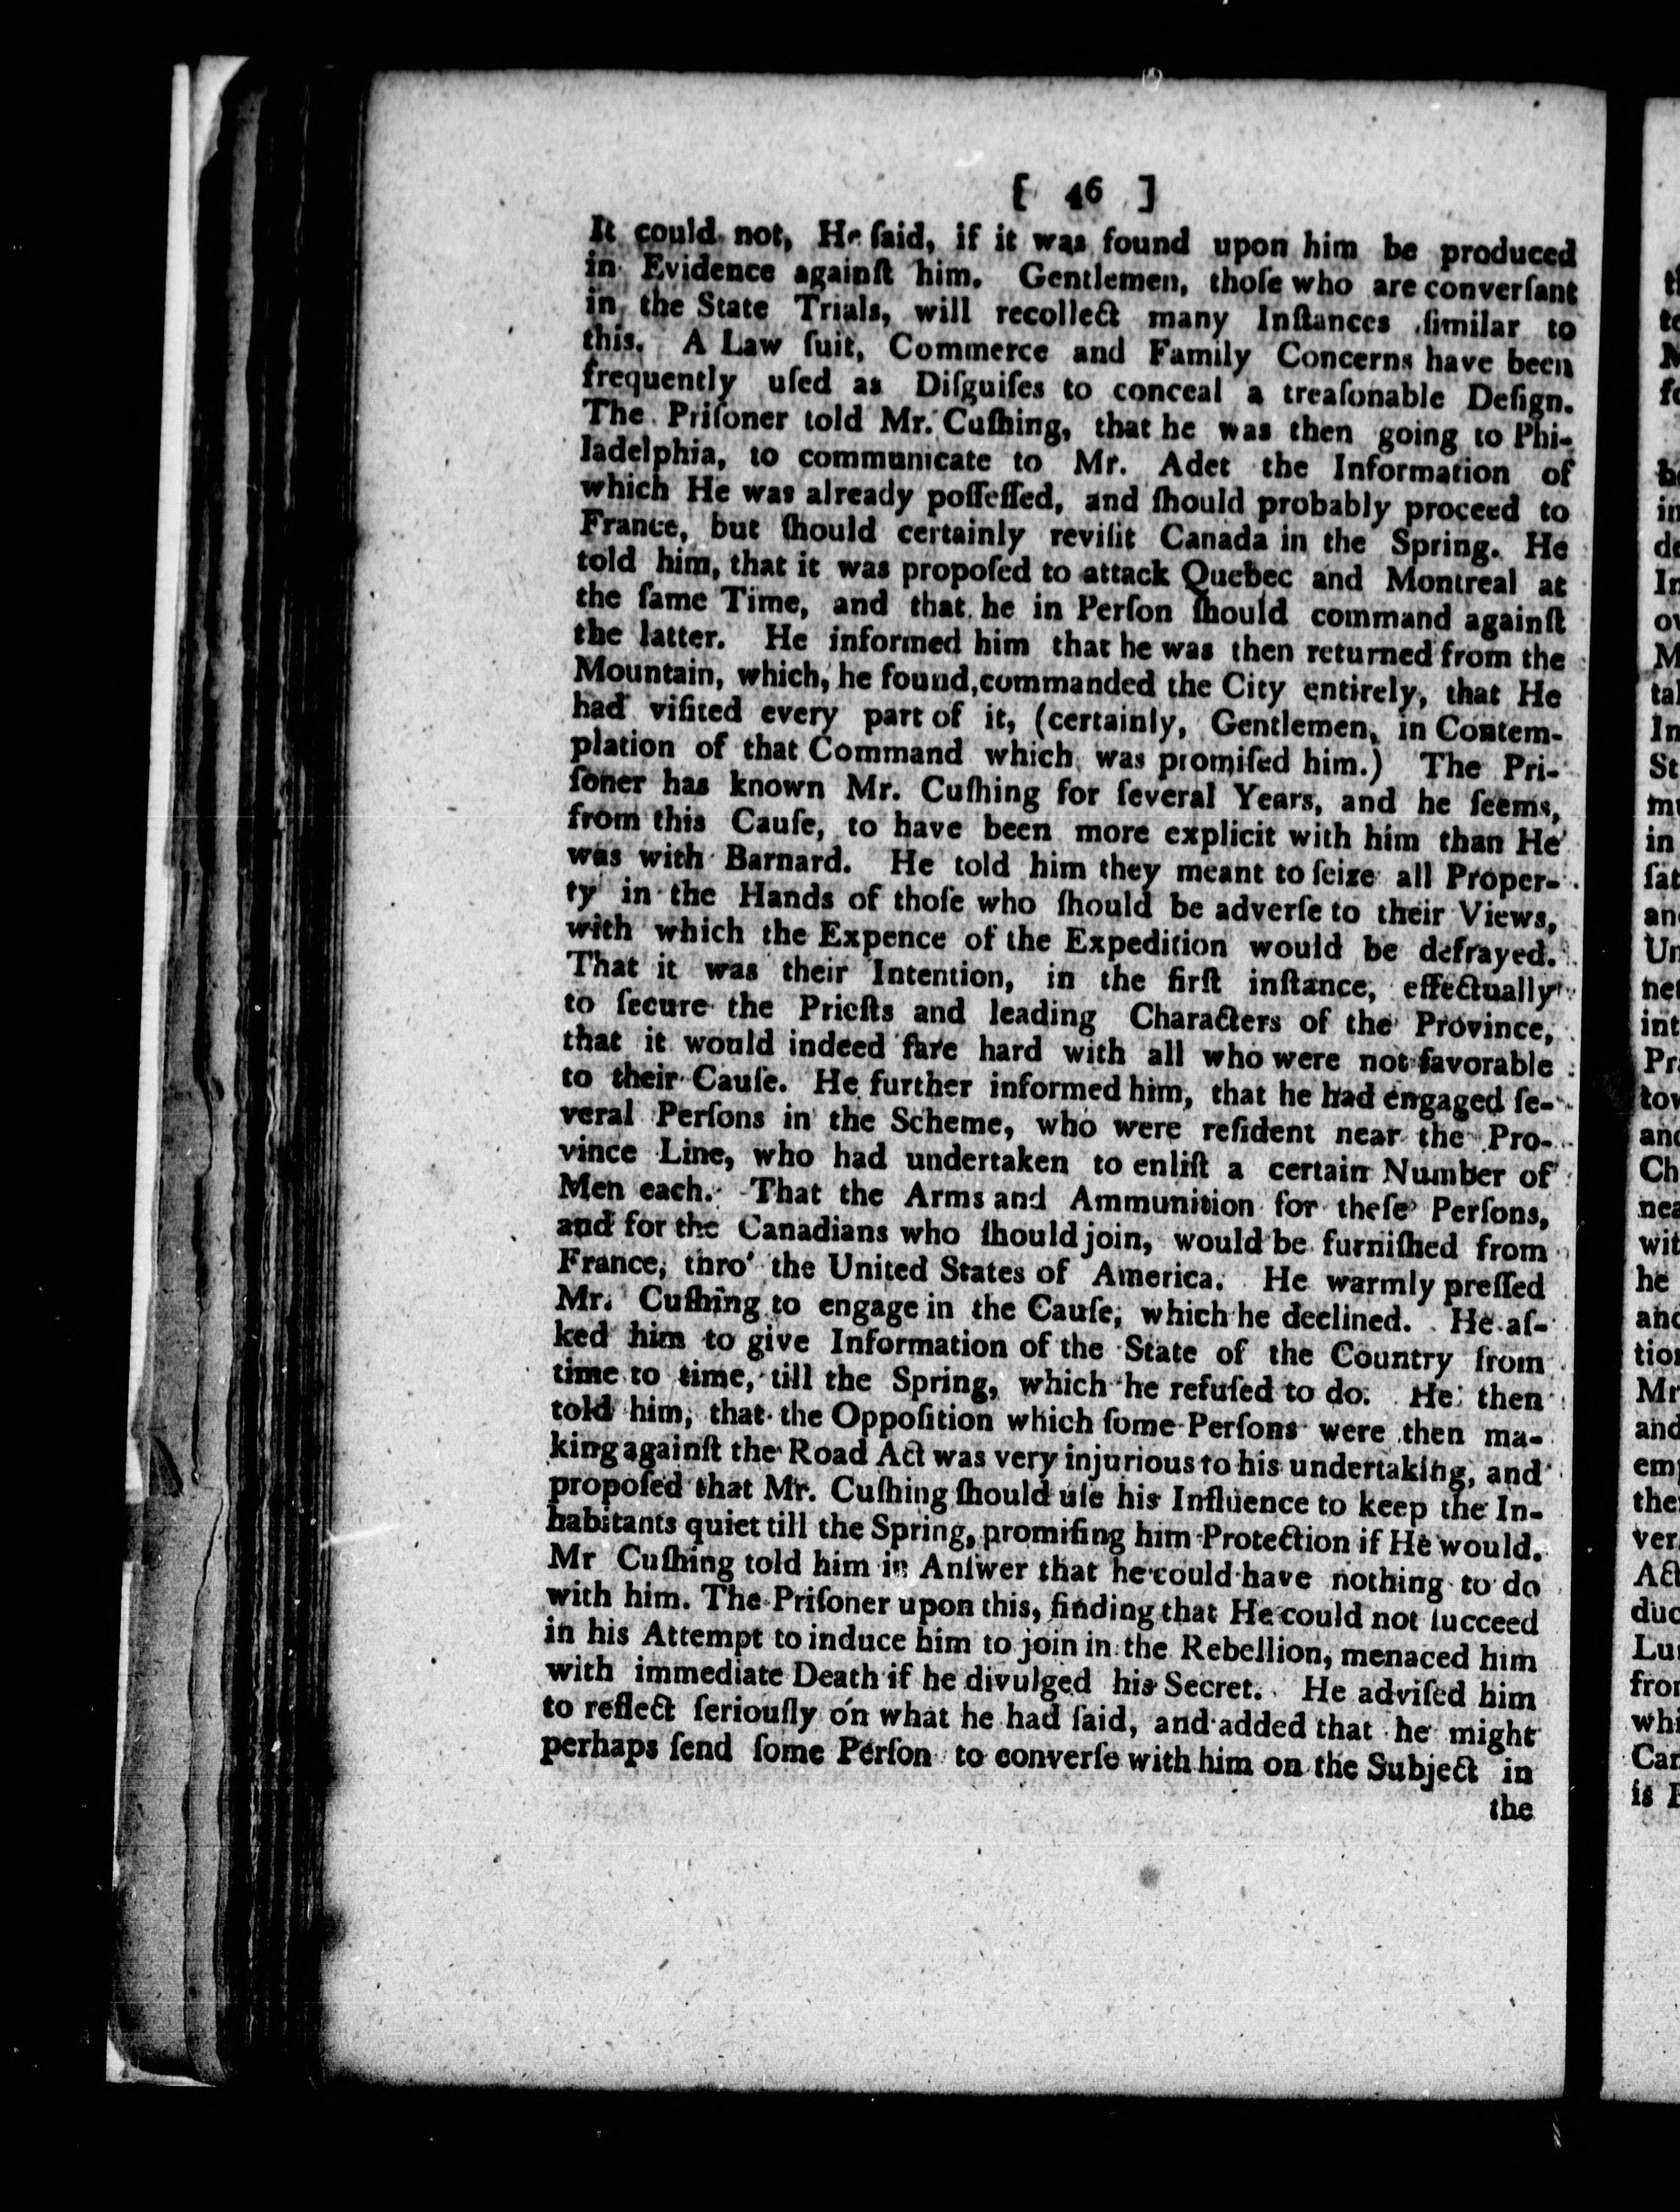 [ 46 ]
It could not, He ſaid, if it was found upon him be produced
in Evidence againſt him. Gentlemen, thoſe who are converſant
in the State Trials, will recollect many Inſtances ſimilar to
this. A Law ſuit, Commerce and Family Concerns have been
frequently uſed as Diſguiſes to conceal a treaſonable Deſign.
The Priſoner told Mr. Cuſhing, that he was then going to Phi-
ladelphia, to communicate to Mr. Adet the Information of
which He was already poſſeſſed, and ſhould probably proceed to
France, but ſhould certainly reviſit Canada in the Spring. He
told him, that it was propoſed to attack Quebec and Montreal at
the ſame Time, and that he in Perſon ſhould command againſt
the latter. He informed him that he was then returned from the
Mountain, which, he found, commanded the City entirely, that He
had viſited every part of it, (certainly, Gentlemen, in Contem-
plation of that Command which was promiſed him.) The Pri-
ſoner has known Mr. Cuſhing for ſeveral Years, and he ſeems,
from this Cauſe, to have been more explicit with him than He
was with Barnard. He told him they meant to ſeize all Proper-
ty in the Hands of thoſe who ſhould be adverſe to their Views,
with which the Expence of the Expedition would be defrayed.
That it was their Intention, in the firſt inſtance, effectually
to ſecure the Prieſts and leading Characters of the Province,
that it would indeed fare hard with all who were not favorable
to their Cauſe. He further informed him, that he had engaged ſe-
veral Perſons in the Scheme, who were reſident near the Pro-
vince Line, who had undertaken to enliſt a certain Number of
Men each. That the Arms and Ammunition for theſe Perſons,
and for the Canadians who ſhould join, would be furniſhed from
France, thro' the United States of America. He warmly preſſed
Mr. Cuſhing to engage in the Cauſe, which he declined. He aſ-
ked him to give Information of the State of the Country from
time to time, till the Spring, which he refuſed to do. He then
told him, that the Oppoſition which ſome Perſons were then ma-
king againſt the Road Act was very injurious to his undertaking, and
propoſed that Mr. Cuſhing ſhould uſe his Influence to keep the In-
habitants quiet till the Spring, promiſing him Protection if He would.
Mr Cuſhing told him in Anſwer that he could have nothing to do
with him. The Priſoner upon this, finding that He could not ſucceed
in his Attempt to induce him to join in the Rebellion, menaced him
with immediate Death if he divulged his Secret. He adviſed him
to reflect ſeriouſly on what he had ſaid, and added that he might
perhaps ſend ſome Perſon to converſe with him on the Subject in
the